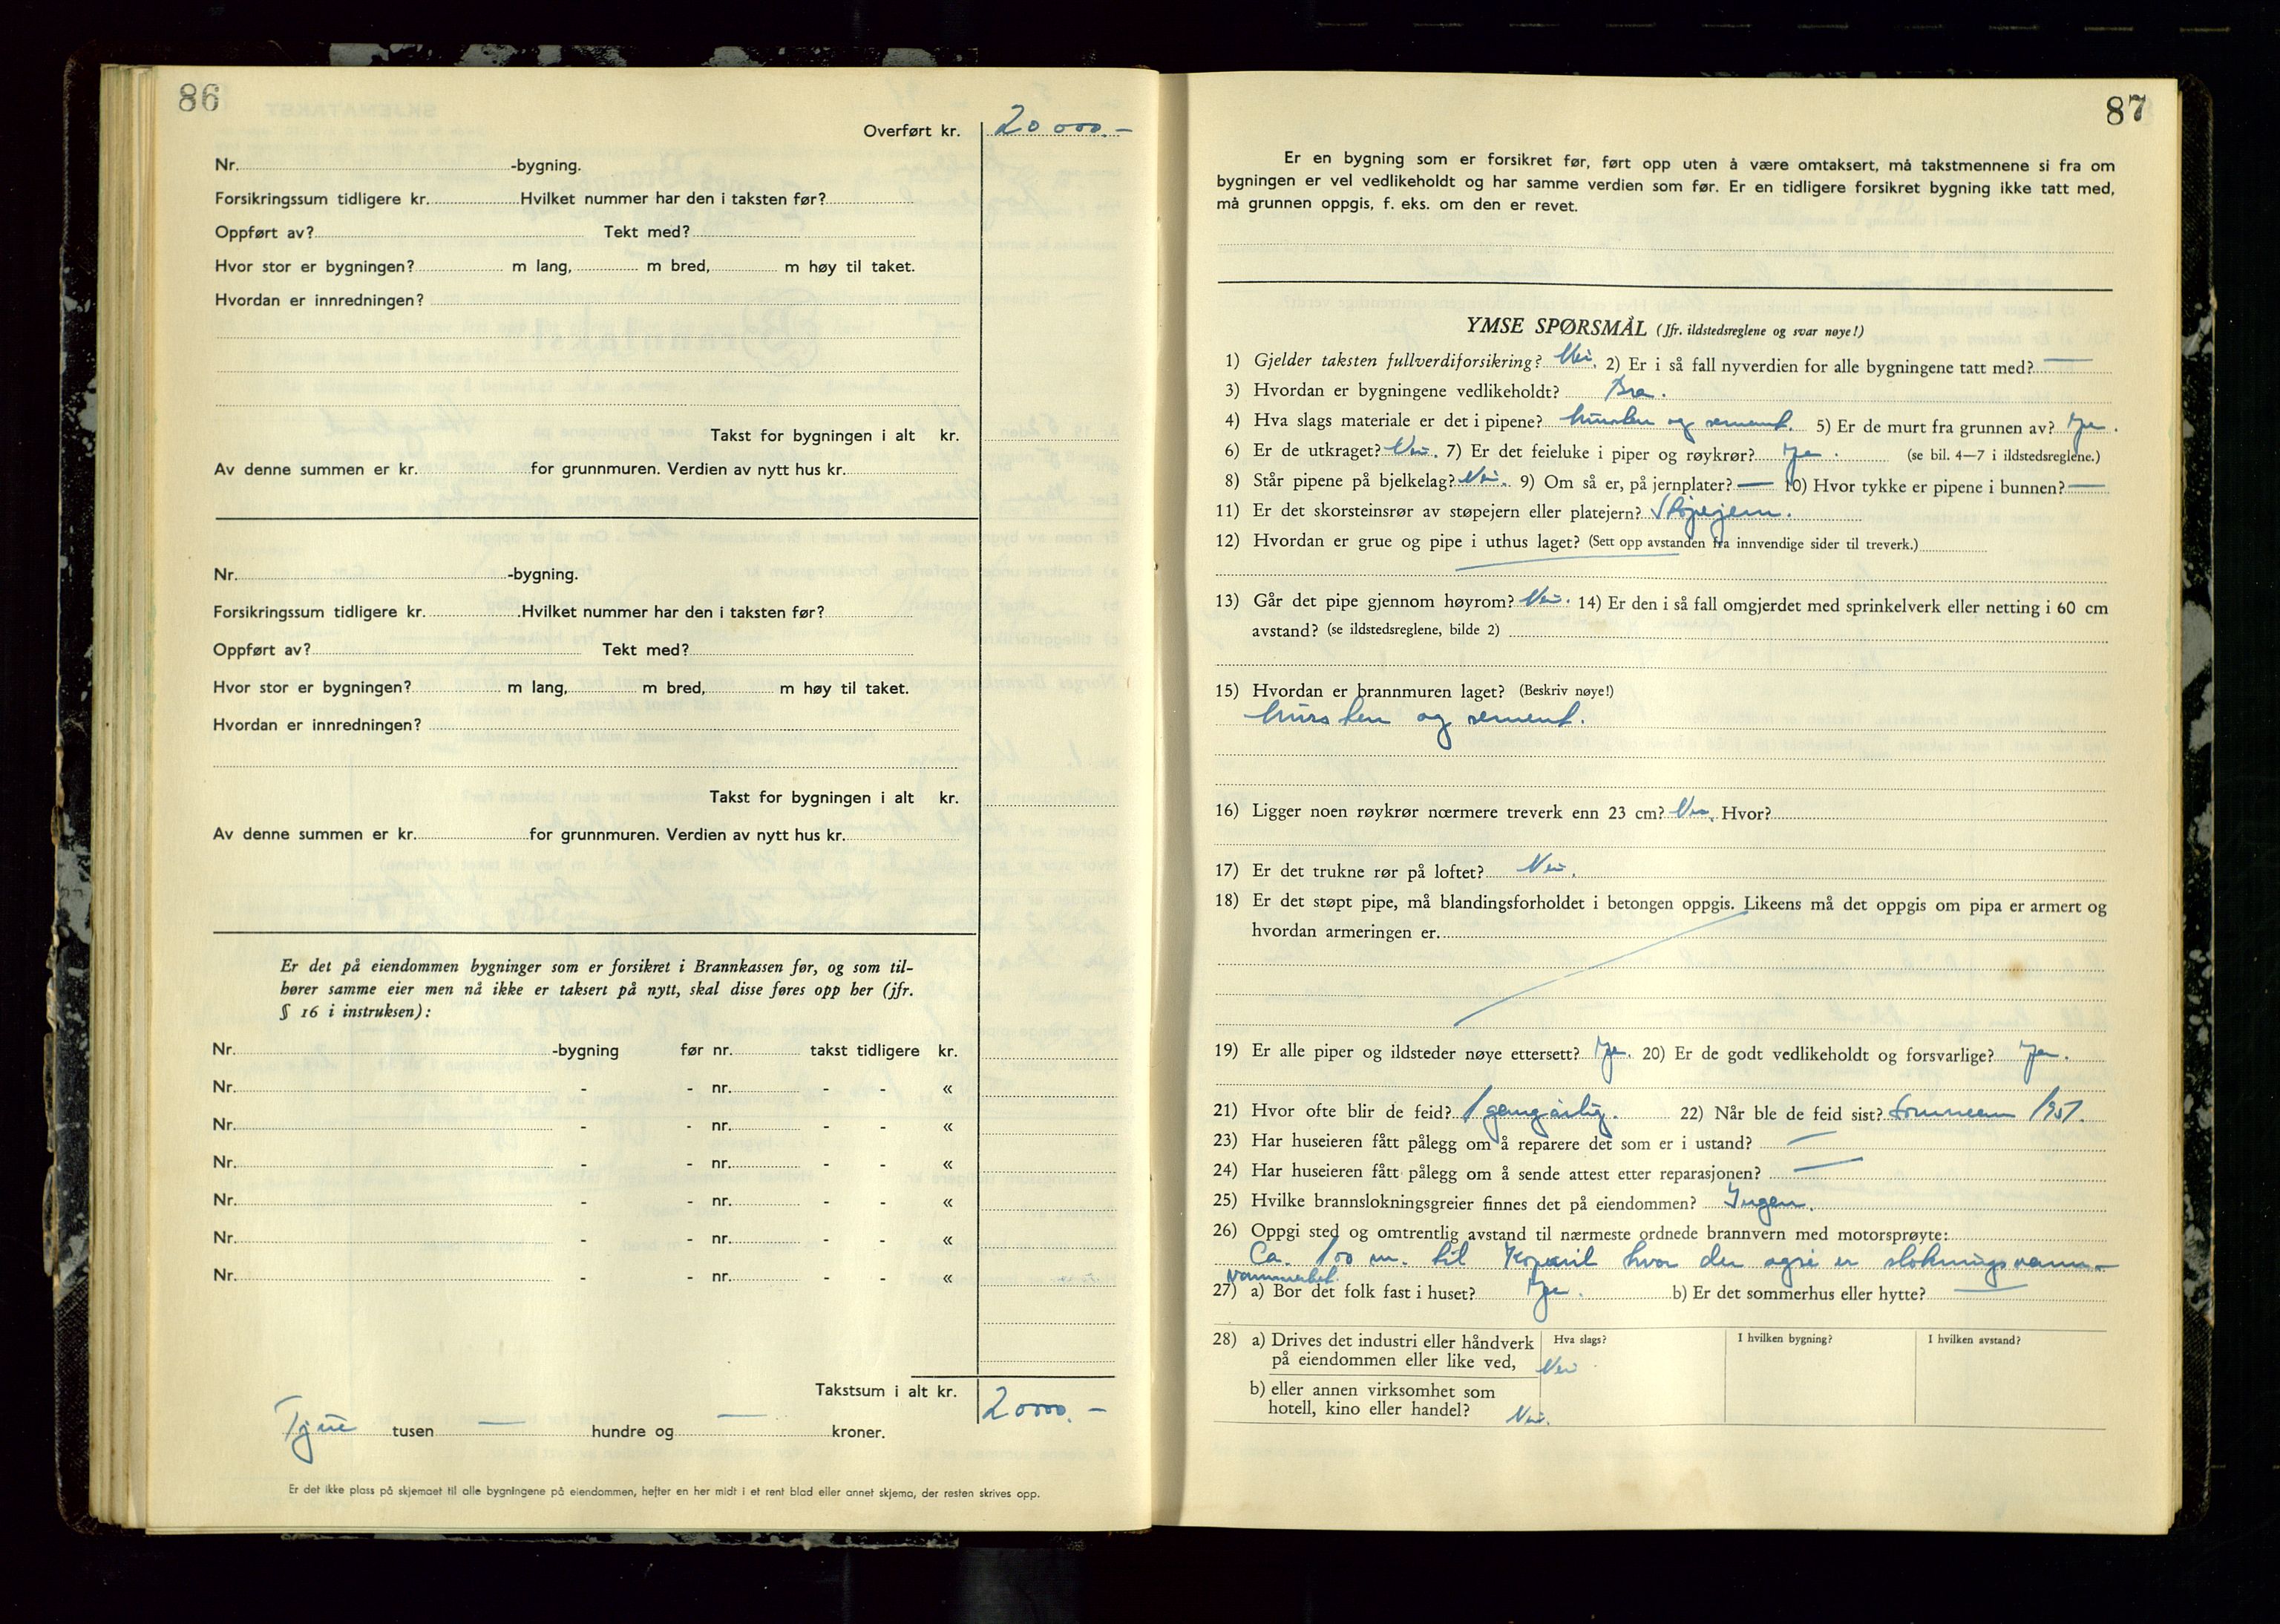 86
Overført kr. 20 000.-
Nr. -bygning.
Forsikringssum tidligere kr. Hvilket nummer har den i taksten før?
Oppført av? Tekt med?
Hvor stor er bygningen? m lang, m bred, m høy til taket.
Hvordan er innredningen?
Takst for bygningen i alt kr.
Av denne summen er kr. for grunnmuren. Verdien av nytt hus kr.
Nr. -bygning.
Forsikringssum tidligere kr. Hvilket nummer har den i taksten før?
Oppført av? Tekt med?
Hvor stor er bygningen? m lang, m bred, m høy til taket.
Hvordan er innredningen?
Takst for bygningen i alt kr.
Av denne summen er kr. for grunnmuren. Verdien av nytt hus kr.
Er det på eiendommen bygninger som er forsikret i Brannkassen før, og som til-
hører samme eier men nå ikke er taksert på nytt, skal disse føres opp her (jfr.
§ 16 i instruksen):
Nr. -bygning før nr. takst tidligere kr.
Nr. - - nr. - - «
Nr. - - nr. - - «
Nr. - - nr. - - «
Nr. - - nr. - - «
Nr. - - nr. - - «
Nr. - - nr. - - «
Takstsum i alt kr. 20000.-
Tjue tusen — hundre og — kroner.
Er det ikke plass på skjemaet til alle bygningene på eiendommen, hefter en her midt i et rent blad eller annet skjema, der resten skrives opp.
87
Er en bygning som er forsikret før, ført opp uten å være omtaksert, må takstmennene si fra om
bygningen er vel vedlikeholdt og har samme verdien som før. Er en tidligere forsikret bygning ikke tatt med,
må grunnen oppgis, f. eks. om den er revet.
YMSE SPØRSMÅL (Jfr. ildstedsreglene og svar nøye!)
1) Gjelder taksten fullverdiforsikring? Nei. 2) Er i så fall nyverdien for alle bygningene tatt med? —
3) Hvordan er bygningene vedlikeholdt? Bra.
4) Hva slags materiale er det i pipene? Mursten og sement. 5) Er de murt fra grunnen av? Ja.
6) Er de utkraget? Nei. 7) Er det feieluke i piper og røykrør? Ja. (se bil. 4—7 i ildstedsreglene.)
8) Står pipene på bjelkelag? Nei. 9) Om så er, på jernplater? — 10) Hvor tykke er pipene i bunnen? —
11) Er det skorsteinsrør av støpejern eller platejern? Støpejern.
12) Hvordan er grue og pipe i uthus laget? (Sett opp avstanden fra innvendige sider til treverk.)
13) Går det pipe gjennom høyrom? Nei. 14) Er den i så fall omgjerdet med sprinkelverk eller netting i 60 cm
avstand? (se ildstedsreglene, bilde 2)
15) Hvordan er brannmuren laget? (Beskriv nøye!)
Mursten og sement.
16) Ligger noen røykrør nœrmere treverk enn 23 cm? Nei. Hvor?
17) Er det trukne rør på loftet? Nei.
18) Er det støpt pipe, må blandingsforholdet i betongen oppgis. Likeens må det oppgis om pipa er armert og
hvordan armeringen er.
19) Er alle piper og ildsteder nøye ettersett? Ja. 20) Er de godt vedlikeholdt og forsvarlige? Ja.
21) Hvor ofte blir de feid? 1 gang årlig. 22) Når ble de feid sist? Sommeren 1951.
23) Har huseieren fått pålegg om å reparere det som er i ustand? —
24) Har huseieren fått pålegg om å sende attest etter reparasjonen? —
25) Hvilke brannslokningsgreier finnes det på eiendommen? Ingen.
26) Oppgi sted og omtrentlig avstand til nærmeste ordnede brannvern med motorsprøyte:
Ca. 100 m. til hvor der også er sloknings
27) a) Bor det folk fast i huset? Ja. b) Er det sommerhus eller hytte? —
28) a) Drives det industri eller håndverk Hva slags? I hvilken bygning? I hvilken avstand?
på eiendommen eller like ved, Nei
b) eller annen virksomhet som
hotell, kino eller handel? Nei.